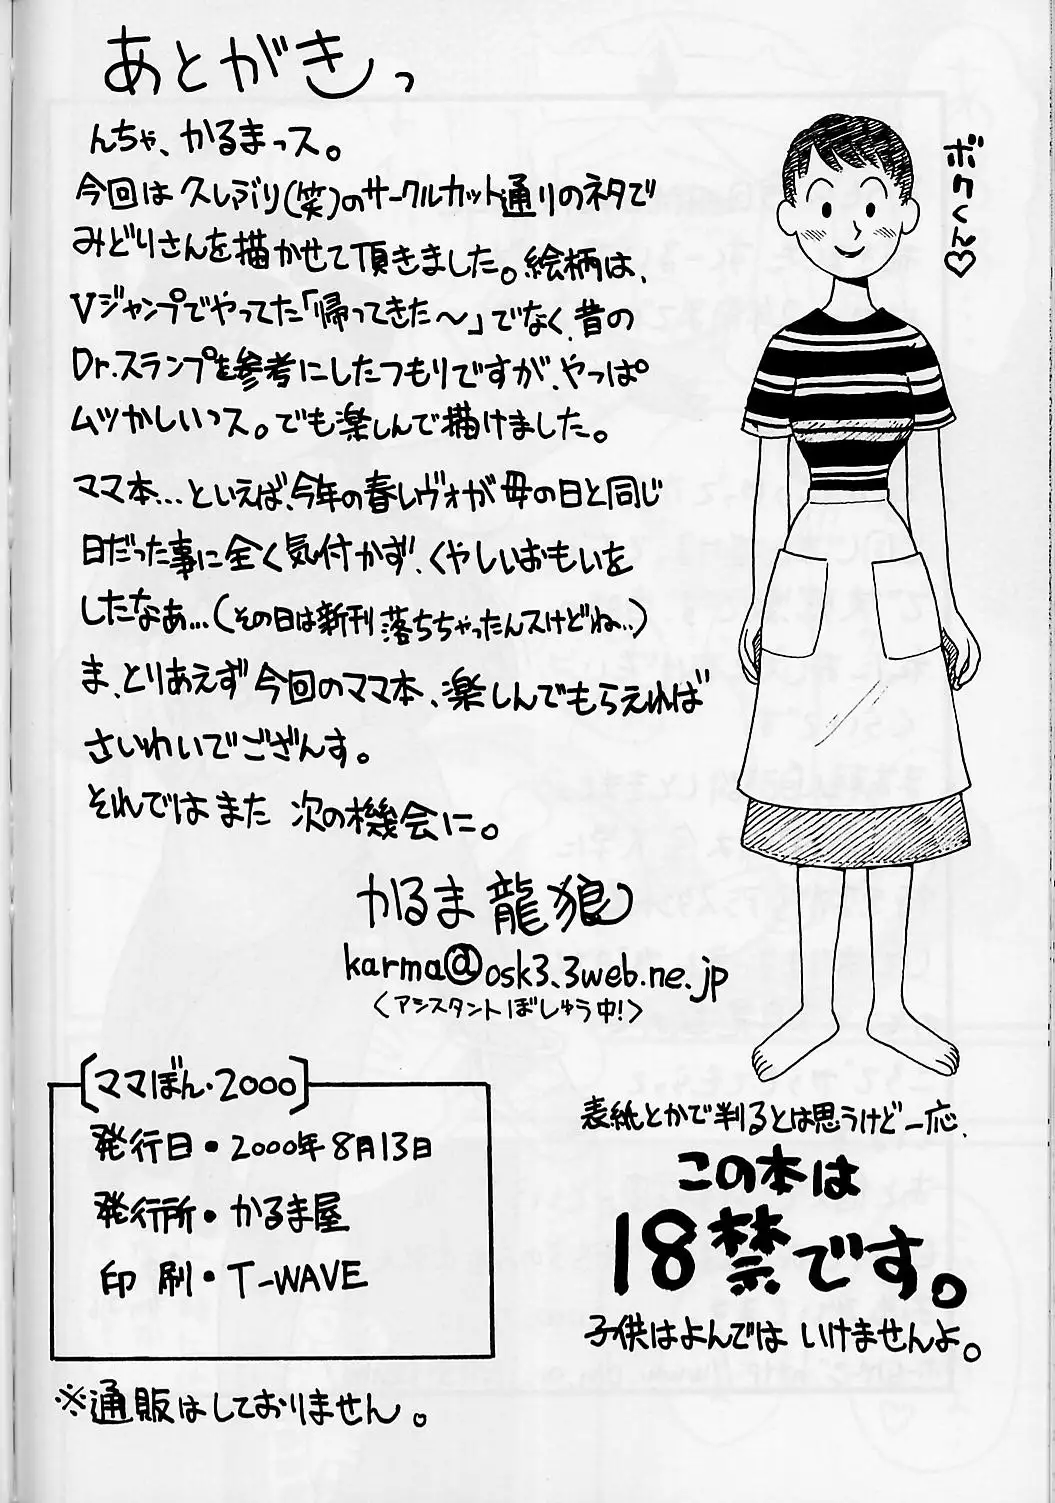 あとがきっ
んちゃ、かるまっス。
今回は久しぶり(笑)のサークルカット通りのネタで
みどりさんを描かせて頂きました。絵柄は、
Vジャンプでやってた「帰ってきた〜」でなく、昔の
Dr.スランプを参考にしたつもりですが、やっぱ
ムツかしいっス。でも楽しんで描けました。
ママ本...といえば、今年の春レヴォが母の日と同じ
日だった事に全く気付かず、くやしいおもいを
したなぁ...(その日は新刊落ちちゃったんスけどね..)
ま、とりあえず今回のママ本、楽しんでもらえれば
さいわいでござんす。
それではまた次の機会に。
かるま龍狼
karma@osk3.3web.ne.jp
〈アシスタントぼしゅう中!〉
ボクくん♡
[ママぼん・2000]
発行日・2000年8月13日
発行所・かるま屋
印刷・T-WAVE
※通販はしておりません。
表紙とかで判るとは思うけど一応、
この本は
18禁です。
子供はよんではいけませんよ。